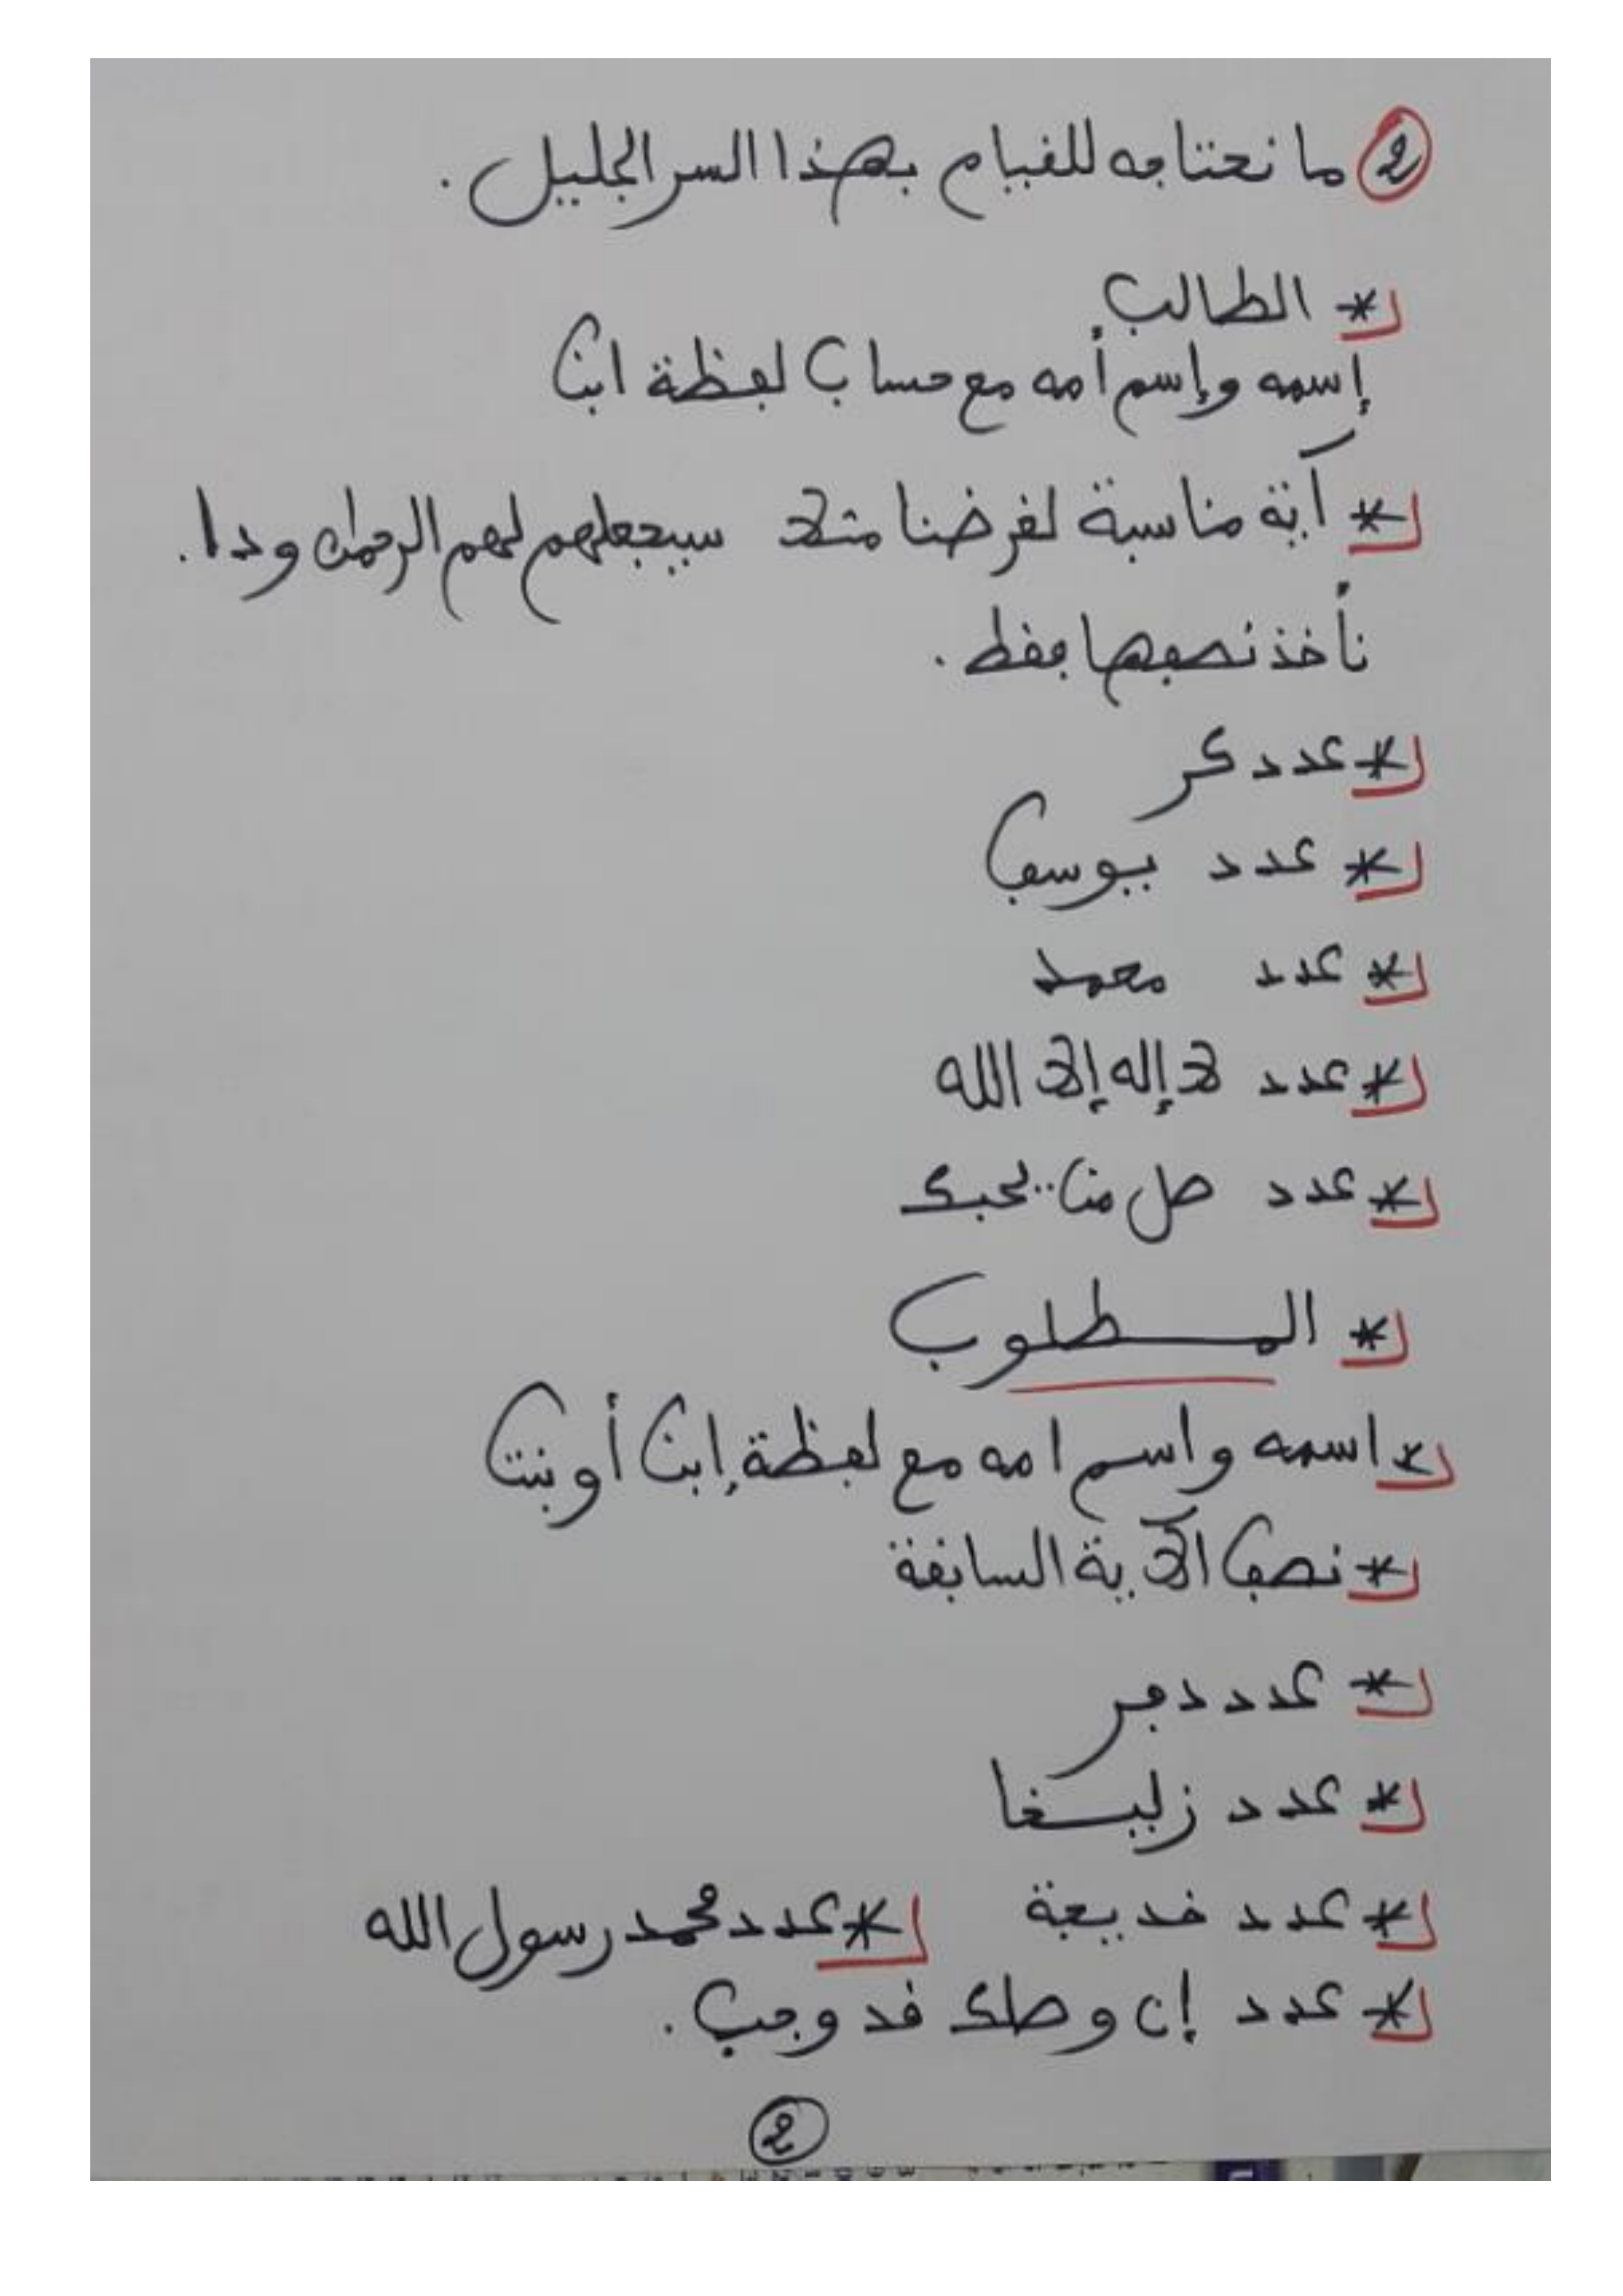 2 ما نحتاجه للقيام بهذا السر الجليل .
* الطالب
إسمه وإسم أمه مع حساب لفظة ابن
* آية مناسبة لغرضنا مثلا سيجعلهم لهم الرحمان ودا .
نأخذ نصفها فقط .
* عدد كر
* عدد يوسف
* عدد محمد
* عدد لا إله إلا الله
* عدد صل من .. يحبك
* المـطلوب
* اسمه واسم امه مع لفظة إبن أو بنت
* نصف الآية السابقة
* عدد دفر
* عدد زليـخا
* عدد خديجة * عدد محمد رسول الله
* عدد إن وصلك قد وجب .
2